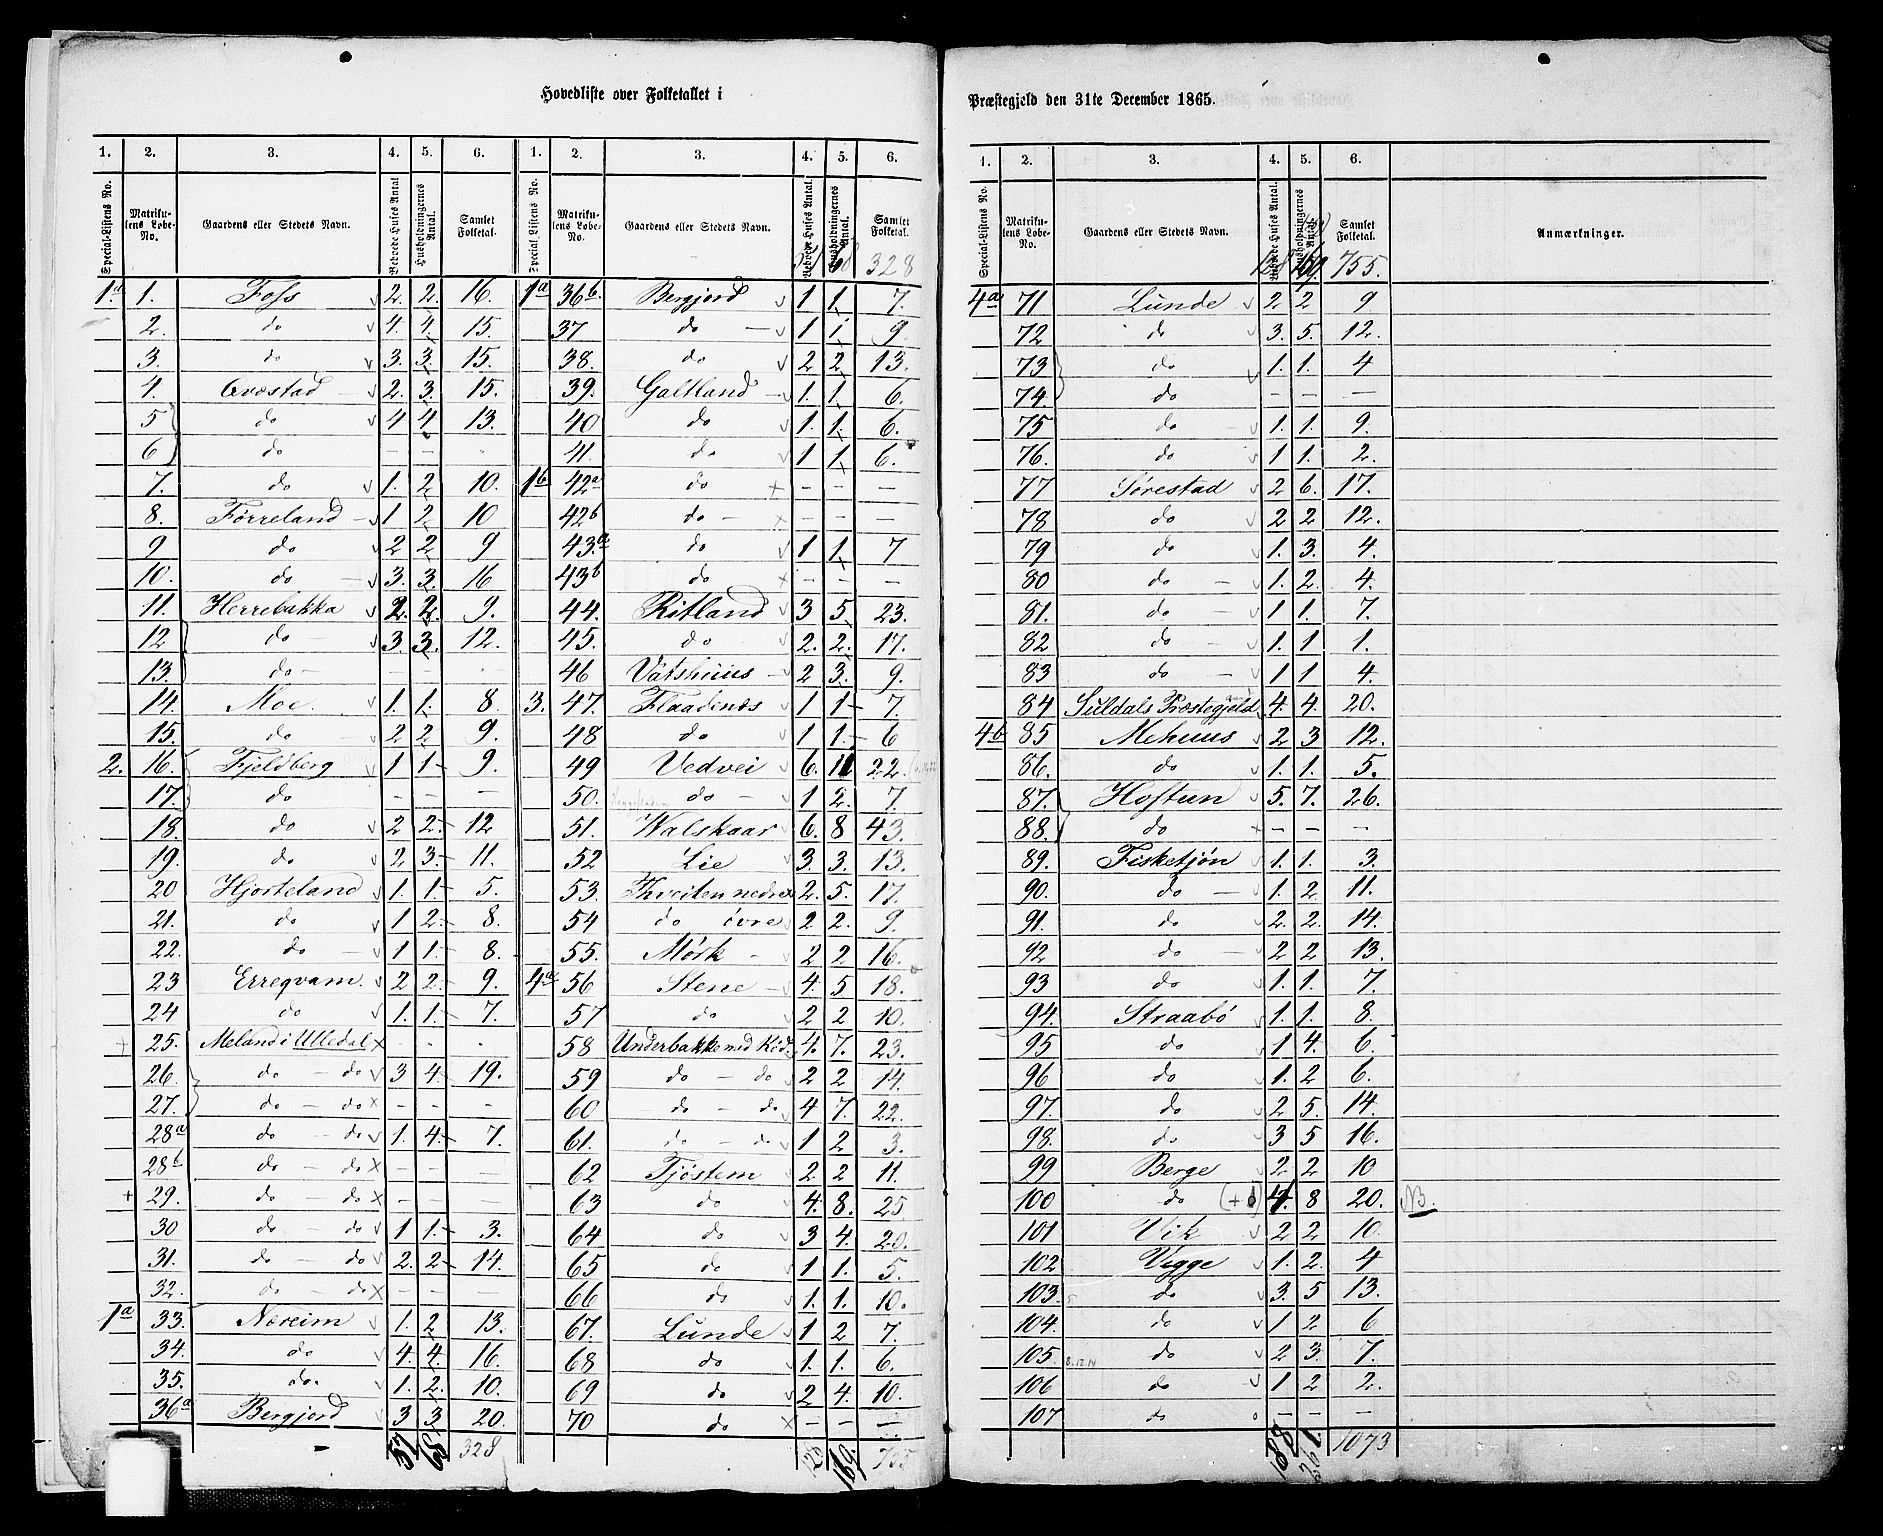 Hovedliste over Folketallet i
1. 2. 3. 4. 5. 6. 1. 2. 3. 4. 5. 6.
Special-Listens No. Matrikulens Løbe-No. Gaardens eller Stedets Navn. Beboede Huses Antal Husholdningernes Antal. Samlet Folketal. Special-Listens No. Matrikulens Løbe-No. Gaardens eller Stedets Navn. Beboede Huses Antal. Husholdningernes Antal. Samlet Folketal.
328
1.a 1. Foss v 2. 2. 16. 1a 36b. Bergjord v 1 1. 7.
2. do v 4. 4. 15. 37 do — v 1 1. 9.
3. do v 3. 3. 15. 38. do v 2 2. 13.
4. Øvæstad 2. 3. 15. 39. Galtland v 1. 1. 6.
5 do v 4 4 13. 40 do v 1. 1. 6.
6 do — — 41. do v 1 1. 6.
7. do v 1. 2 10. 1b 42a do x — — —
8. Førreland v 1 2. 10 42b do — x — — —
9 do v 2 2 9 43.a do v 1 1. 7
10. do — v 3. 3. 16 43b do x — — —
11. Herrebakka v 2. 2. 9. 44. Ritland v 3 5. 23.
12 do — v 3. 3. 12. 45. do v 2. 2. 17.
13. do — — — 46 Vatshuus v 2 3. 9.
14. Moe. v 1. 1. 8. 3. 47. Flaadenæs v 1 1 7.
15. do v 2 2. 9. 48 do v 1 1. 6
2. 16. Fjeldberg v 1 1 9. 49 Vedvei v 6. 11 22.
17. do — — — 50. do — v 1 2. 7.
18. do v 2 2. 12 51. Walskaar v 6. 8 43.
19. do v 2 3. 11. 52. Lie v 3. 3. 13.
20 Hjorteland v 1. 1. 5. 53. Thveiten nedre x 2. 5. 17.
21. do v 1 2. 8. 54 do øvre v 2 2. 9.
22. do — v 1 1. 8. 55. Mørk — v 2 2 16.
23 Erregvam. v 2 2. 9. 4a 56 Stene v 4. 5 18.
24 do v 1. 1. 7. 57 do v 2 2 10.
+ 25. Meland i Ulledal x 58 Underbakke med Kid. 4. 7. 23.
26. do — do v 3 4. 19. 59 do — do v 2 2 14.
27. do — do x — — — 60 do — do v 4 7. 22.
28a do — do v 1. 4. 7. 61. do — do v 1 2 3.
28b do — do x — — — 62 Tjøstem v 2. 2 11.
+ 29. do — do x — — — 63 do v 4. 8. 25
30 do — do v 1 1. 3. 64 do v 3 4. 20.
31. do — do v 2. 2 14. 65 do v 1 1. 5.
32. do — do x — — — 66 do v 1. 1. 10.
1a 33. Næreim v 1. 2 13. 67. Lunde v 1 2 7.
34. do v 4. 4. 16. 68 do v 1. 1. 6.
35. do. v 1. 2. 10. 69 do v 2 4. 10.
36a Bergjord v 3 3 20. 70 do x — — —
328
Præstegjeld den 31te December 1865.
1. 2. 3. 4. 5. 6.
Special-Listens No. Matrikulens Løbe-No. Gaardens eller Stedets Navn. Beboede Huses Antal. Husholdningernes Antal Samlet Folketal. Anmærkninger.
755.
4a 71 Lunde v 2 2 9
72 do v 3. 5. 12.
73 do v 1. 1. 4
74. do — — —
75 do v 1. 1. 9.
76. do v 1 1. 2.
77 Sørestad v 2 6. 17.
78 do v 2 2 12.
79 do v 1. 3. 4.
80 do — v 1. 2. 4.
81. do — v 1 1. 7.
82 do — v 1 1 1.
83 do — v 1 1 4.
84 Suldals Præstegjeld 4. 4. 20.
4b 85 Mehuus v 2 3 12.
86. do v 1. 1. 5.
87. Hoftun v 5. 7. 26.
88. do x — — —
89. Fisketjøn v 1. 1. 3.
90. do — v 1. 2 11.
91. do v 2. 2. 14.
92 do — v 2 2 13.
93 do v 1. 1. 7.
94. Straabø v 1. 1. 8.
95 do v 1 4. 6.
96 do v 1. 2 6.
97. do v 2 5. 14.
98. do v 3 5 16.
99 Berge v 2 2 10
100 do (+1) 4. 8 20. NB.
101 Vik v 2 2 10.
102 Vigge v 1. 2. 4
103. do v 3. 5 13.
104. do v 1 2 6
105. 8.12.14 do v 2 3. 7.
106 do v 1 2 2.
107 do — — —
188 261. 1073